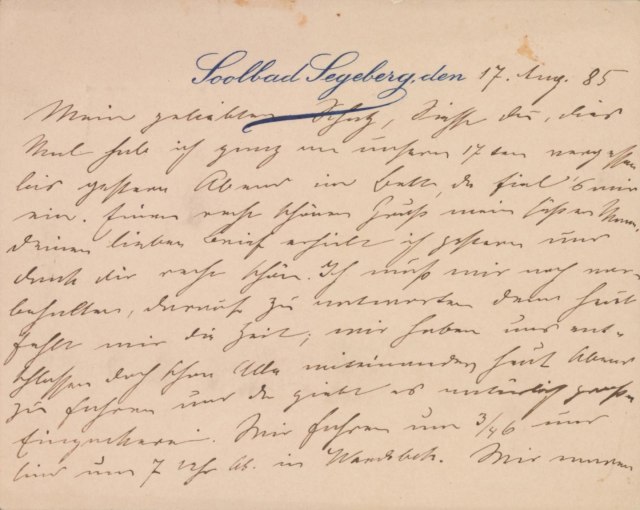 Soolbad Segeberg, den 17. Aug. 85
Mein geliebter Schatz, Siehst du, dies
Mal hab ich ganz an unsern 17ten vergessen
bis gestern Abend im Bett, da fiel's mir
ein. Einen recht schönen Gruß mein süßer Mann,
Deinen lieben Brief erhielt ich gestern und
dank dir recht schön. Ich muß mir noch vor-
behalten, darauf zu antworten denn heut
fehlt mir die Zeit; wir haben uns ent-
schlossen doch schon Alle miteinander heut Abend
zu fahren und da giebt es natürlich große
Einpackerei. Wir fahren um 3/4 6 und
sind um 7 Uhr Ab. in Wandsbek. Wir waren